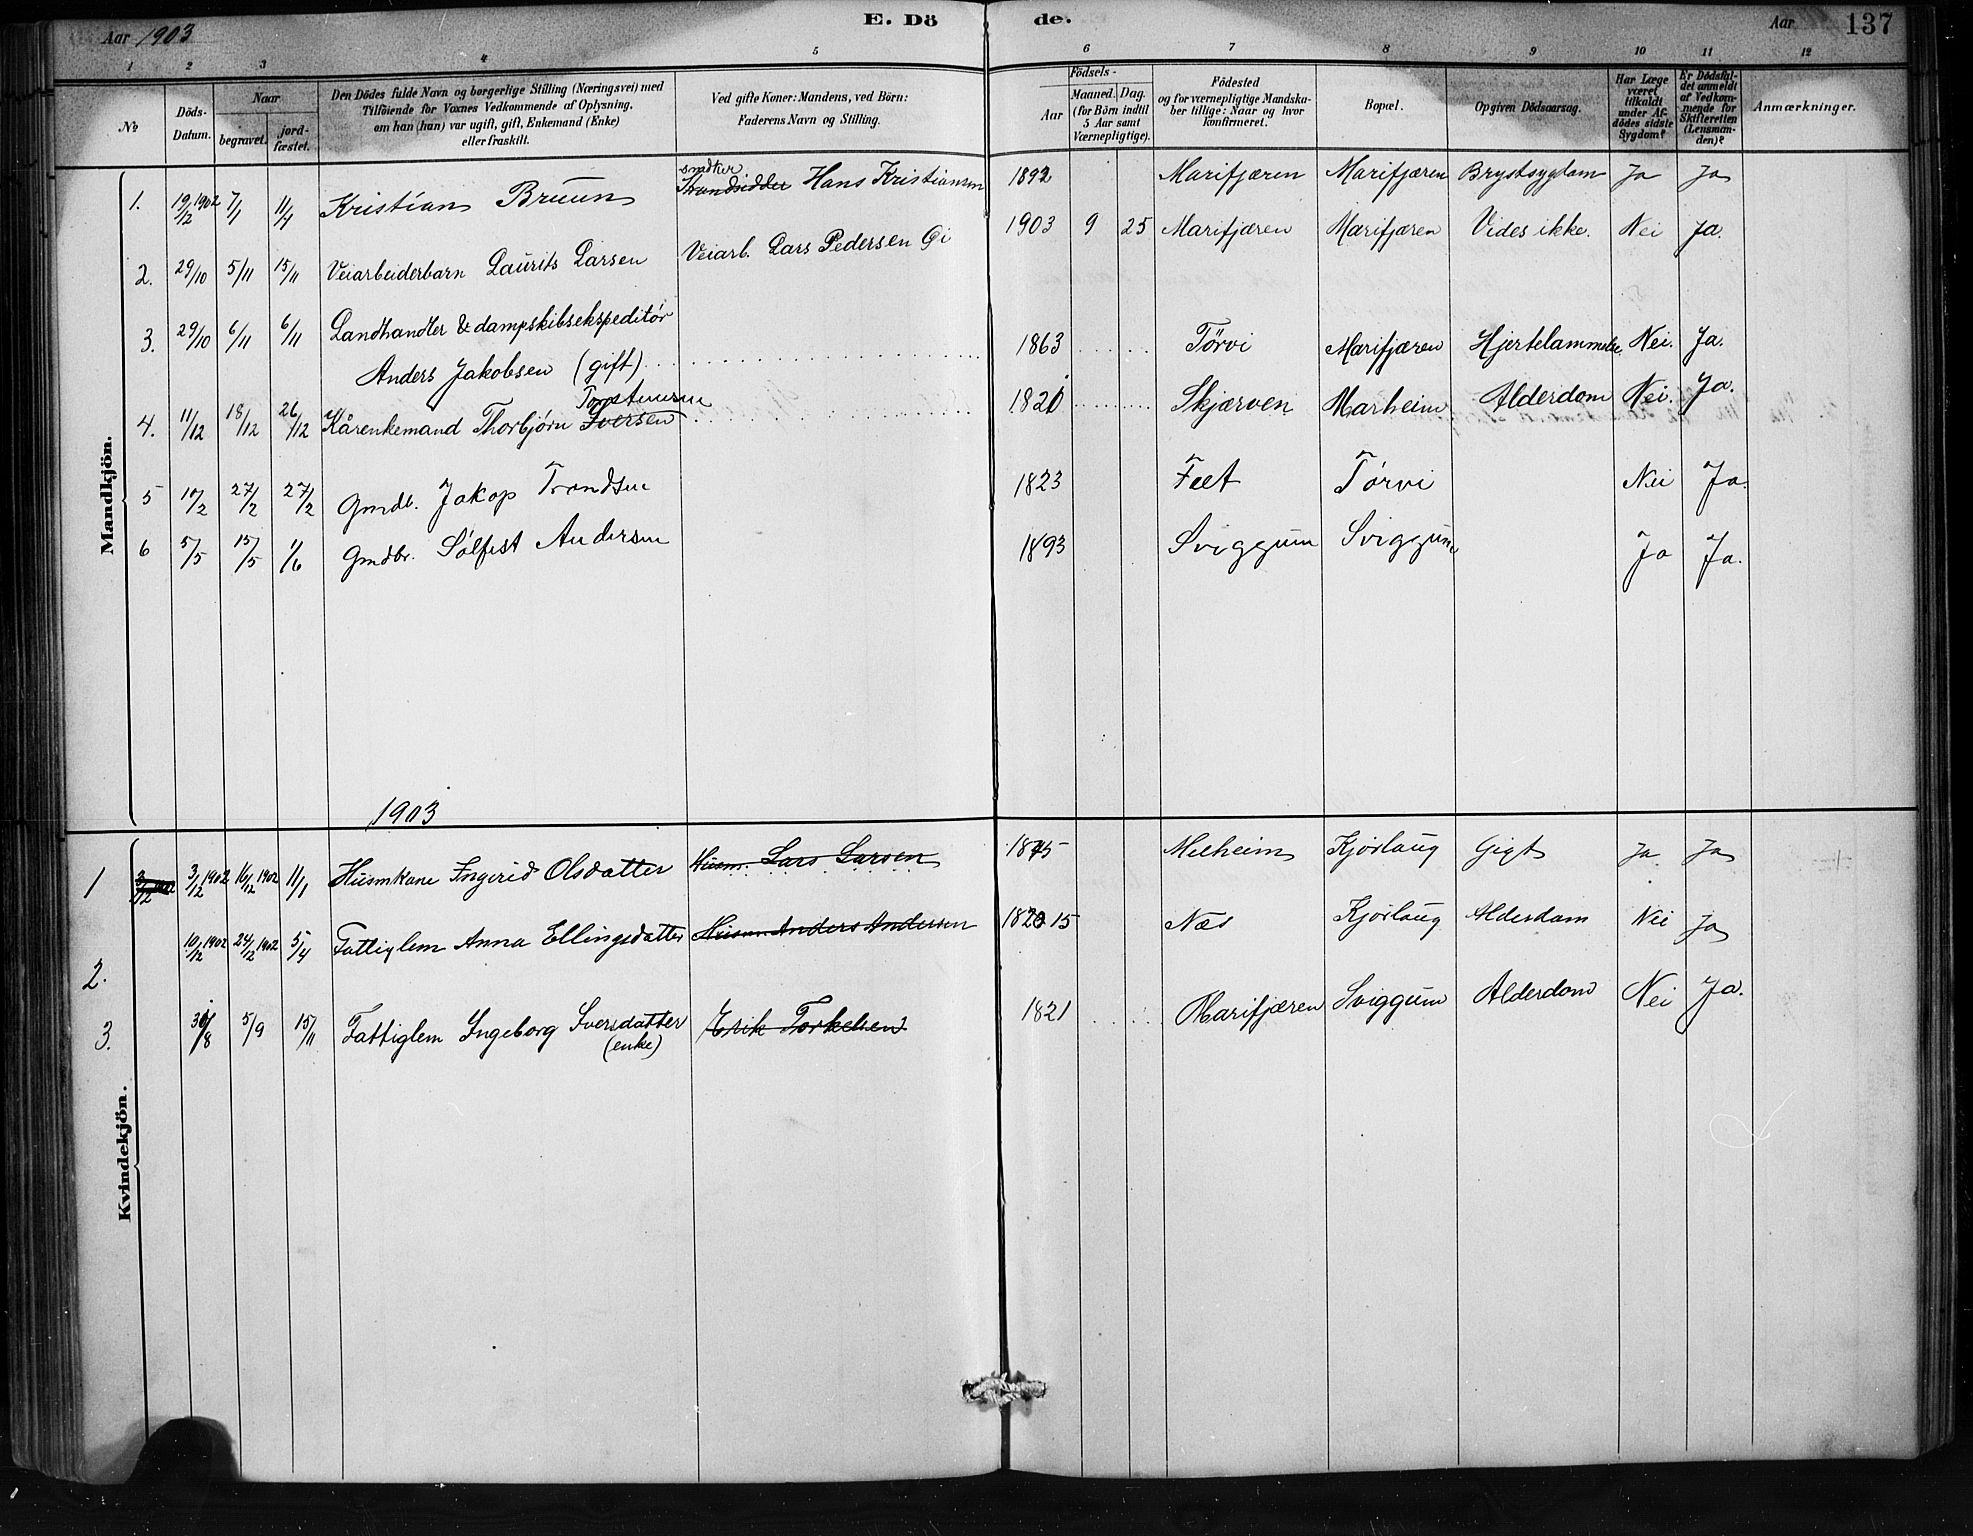 Aar 1903 E. Dö de. Aar 137
1 2 3 4 5 6 7 8 9 10 11 12
No Döds-Datum. Naar begravet. jordfæstet. Den Dödes fulde Navn og borgerlige Stilling (Næringsvei) med Tilföiende for Voxnes Vedkommende af Oplysning, om han (hun) var ugift, gift, Enkemand (Enke) eller fraskilt. Ved gifte Koner: Mandens, ved Börn: Faderens Navn og Stilling. Födsels- Aar Maaned. Dag. (for Börn indtil 5 Aar samt Værnepligtige). Födested og for værnepligtige Mandskaber tillige: Naar og hvor konfirmeret. Bopæl. Opgiven Dödsaarsag. Har Læge været tilkaldt under Afdödes sidste Sygdom? Er Dödsfaldet anmeldt af Vedkommende for Skifteretten (Lensmanden)? Anmærkninger.
Mandkjön.
snedker
1. 19/12 1902 7/1 11/4 Kristian Bruun Strandsidder Hans Kristiansen 1892 Marifjæren Marifjæren Brystsygdom Ja Ja
2. 29/10 5/11 15/11 Veiarbeiderbarn Laurits Larsen Veiarb. Lars Pedersen Gi 1903 9 25 Marifjæren Marifjæren Vides ikke. Nei Ja.
3. 29/10 6/11 6/11 Landhandler & dampskibsekspeditör
Anders Jakobsen (gift) 1863 Törvi Marifjæren Hjertelammelse. Nei. Ja.
Torstensen
4. 11/12 18/12 26/12 Kårenkemand Thorbjörn Iversen 1821 Skjærven Marheim Alderdom Nei. Ja.
5 10/2 27/2 27/2 Gmdb. Jakop Trondsen 1823 Feet Törvi Nei Ja.
6 5/5 15/5 1/6 Gmdbr. Sölfest Andersen 1893 Sviggum Sviggum Ja Ja.
1903
Kvindekjön.
1 3/12 1902 3/12 1902 16/12 1902 11/1 Husmkone Ingerid Olsdatter Husm. Lars Larsen 1845 Melheim Kjörlaug Gigt Ja Ja
2. 10/12 1902 24/12 1902 5/4 Fattiglem Anna Ellingsdatter Husm. Anders Andersen 1820 15 Næs Kjörlaug Alderdam Nei Ja
3. 30/8 5/9 15/11 Fattiglem Ingeborg Iversdatter Erik Torkelsen 1821 Marifjæren Sviggum Alderdom Nei Ja.
(enke)